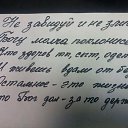 Не завидуй и не зли
Богу молча поклонись
Что здоров ты, сыт, одет
И живёшь вдали от бед
Остальное - это жизнь
Что Бог дал - за то держ